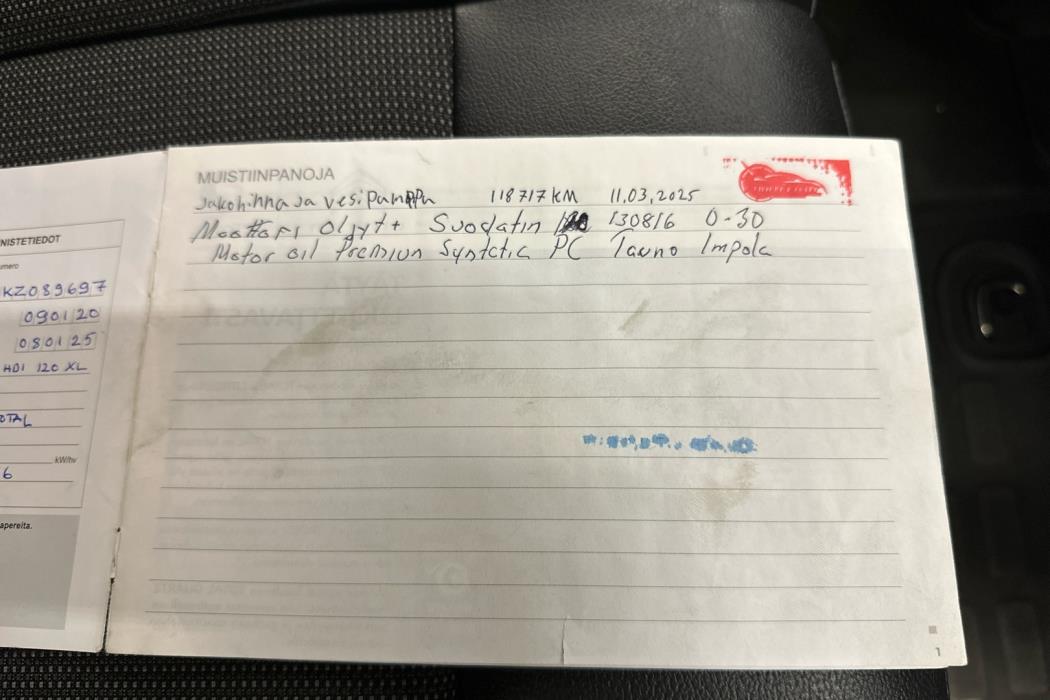 NISTETIEDOT
umero
KZ089697
090120
080125
HDI 120 XL
OTAL
kW/hv
6
apereita.
MUISTIINPANOJA
Jakohihna ja vesipumppu 118717 KM 11.03.2025
Moottori Öljyt+ Suodatin 130816 0-30
Motor oil Premium Syntetic PC Tauno Impola
1